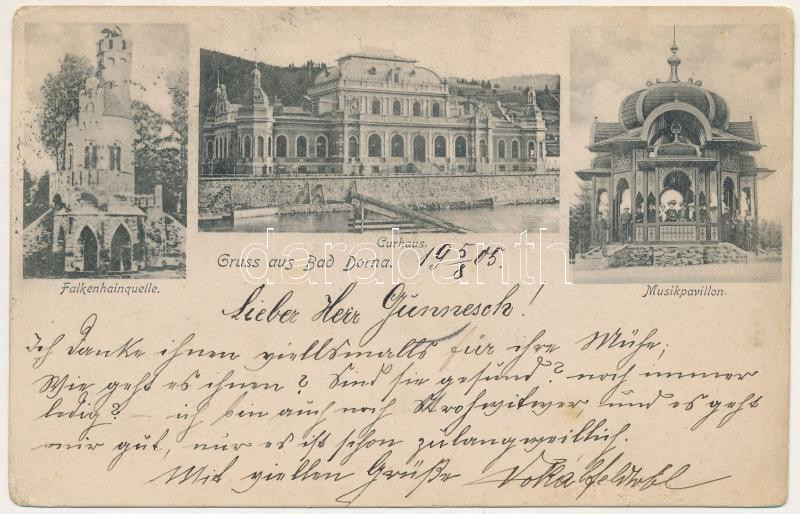 Falkenhainquelle.
Curhaus.
Musikpavillon.
Gruss aus Bad Dorna. 19 5/8 05.
darabanth.com
Lieber Herr Gunnesch!
Ich danke ihnen viellsmalls für ihre Mühe;
Wie geht es ihnen? Sind sie gesund? noch immer
ledig? – ich bin auch noch Strohwitwer und es geht
mir gut, nur es ist schon zulangweillich.
Mit viellen Grüße